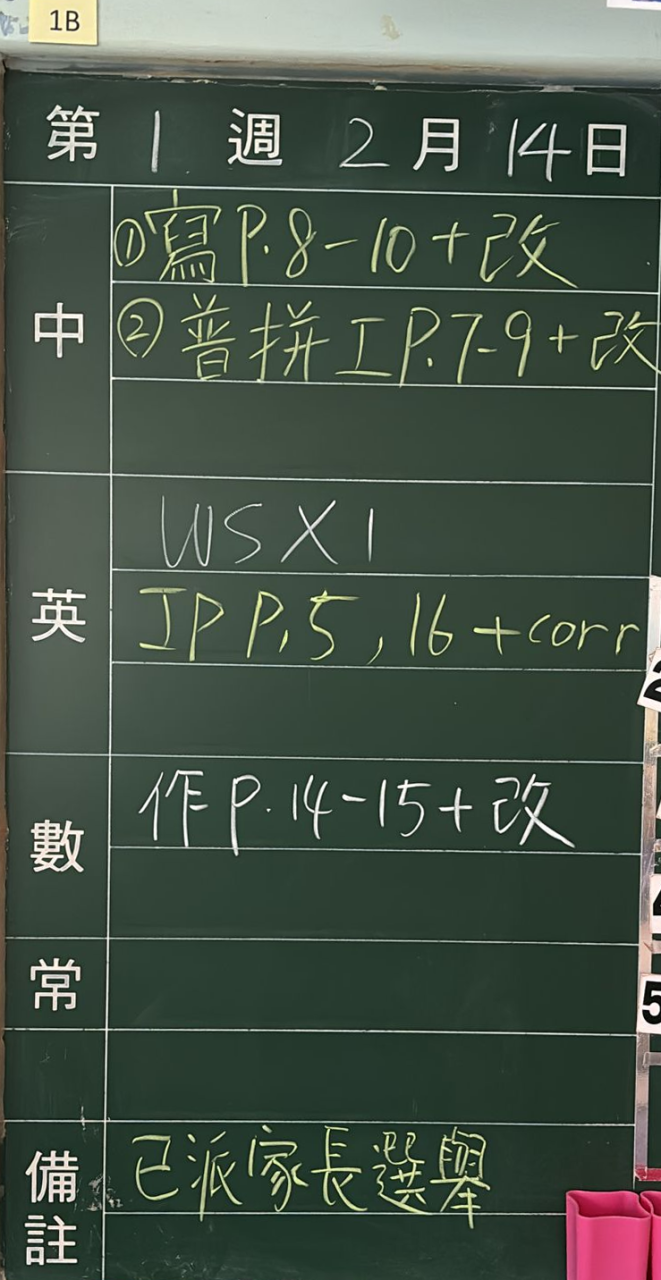 1B
第 1 週 2 月 14 日
中
①寫 P.8-10+改
②普拼工 P.7-9+改
英
WS X 1
IP P.5, 16 +corr
數
作 P.14-15+改
常
備註
已派家長選舉
2
4
5